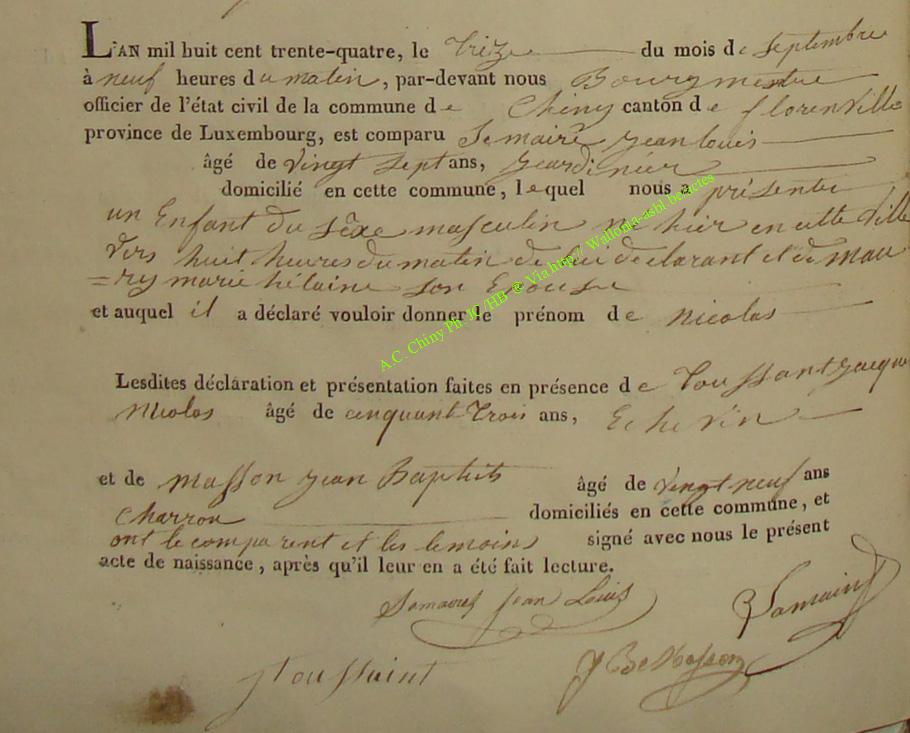 L'AN mil huit cent trente-quatre, le treize du mois de septembre
à neuf heures du matin, par-devant nous Bourgmestre
officier de l'état civil de la commune de Chiny canton de florenville
province de Luxembourg, est comparu Semaire jean louis
âgé de vingt sept ans, jeardinier
domicilié en cette commune, lequel nous a présenté
un Enfant du sèxe masculin né hier en cette ville
vers huit heures du matin de lui déclarant et de mau
=ry marie hélaine son Epouse
et auquel il a déclaré vouloir donner le prénom de nicolas
Lesdites déclaration et présentation faites en présence de toussant jacque
nicolas âgé de cinquant trois ans, Echevin
et de masson jean Baptist âgé de vingt-neuf ans
charron domiciliés en cette commune, et
ont le comparent et les temoins signé avec nous le présent
acte de naissance, après qu'il leur en a été fait lecture.
jean Louis
J toussaint
J Bte Masson
A.C. Chiny Ph. JG/HB @ Via http// Wallonia-asbl be/actes